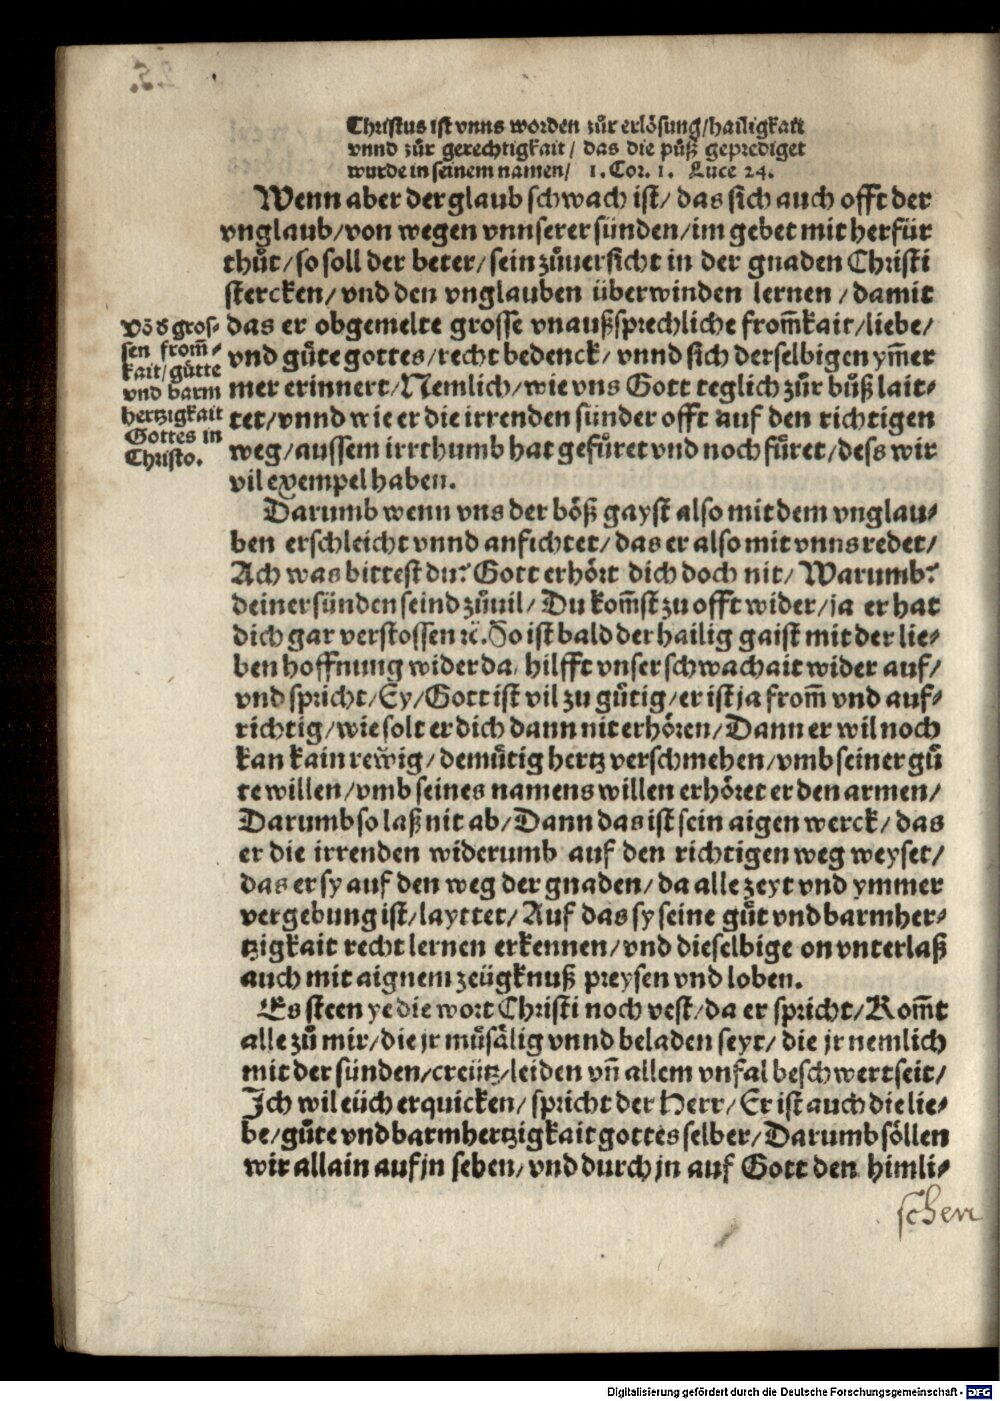 Christus ist vnns worden zůr erlösung/hailigkait
vnnd zůr gerechtigkait/ das die půß geprediget
wurde in seinem namen/ 1. Cor. 1. Luce 24.
Wenn aber der glaub schwach ist/ das sich auch offt der
vnglaub/von wegen vnnserer sünden/im gebet mit herfür
thůt/so soll der beter/sein zůuersicht in der gnaden Christi
stercken/vnd den vnglauben überwinden lernen/damit
das er obgemelte grosse vnaußsprechliche from̃kait/liebe/
vnd gůte gottes/recht bedenck/vnnd sich derselbigen ym̃er
mer erinnert/Nemlich/wie vns Gott teglich zůr bůß lait⸗
tet/vnnd wie er die irrenden sünder offt auf den richtigen
weg/aussem irrthumb hat gefůret vnd noch fůret/dess wir
vil exempel haben.
Võ d̕ gros⸗
sen from̃⸗
kait/gůtte
vnd barm
hertzigkait
Gottes in
Christo.
Darumb wenn vns der böß gayst also mit dem vnglau⸗
ben erschleicht vnnd anfichtet/das er also mit vnns redet/
Ach was bittest du? Gott erhört dich doch nit/Warumb?
deiner sünden seind zůuil/Du kom̃st zu offt wider/ja er hat
dich gar verstossen ꝛc̄. So ist bald der hailig gaist mit der lie⸗
ben hoffnung wider da/hilfft vnser schwachait wider auf/
vnd spricht/Ey/Gott ist vil zu gůtig/er ist ja from̃ vnd auf⸗
richtig/wie solt er dich dann nit erhören/Dann er wil noch
kan kain rewig/demůtig hertz verschmehen/vmb seiner gů
te willen/vmb seines namens willen erhöret er den armen/
Darumb so laß nit ab/Dann das ist sein aigen werck/das
er die irrenden widerumb auf den richtigen weg weyset/
das er sy auf den weg der gnaden/da alle zeyt vnd ymmer
vergebung ist/layttet/Auf das sy seine gůt vnd barmher⸗
tzigkait recht lernen erkennen/vnd dieselbige on vnterlaß
auch mit aignem zeügknuß preysen vnd loben.
Es steen ye die wort Christi noch vest/da er spricht/Kom̃t
alle zů mir/die jr můsälig vnnd beladen seyt/die jr nemlich
mit der sünden/creütz/leiden vñ allem vnfal beschwert seit/
Ich wil eüch erquicken/spricht der Herr/Er ist auch die lie⸗
be/gůte vnd barmhertzigkait gottes selber/Darumb söllen
wir allain auf jn sehen/vnd durch jn auf Gott den himli⸗
schen
Digitalisierung gefördert durch die Deutsche Forschungsgemeinschaft - DFG